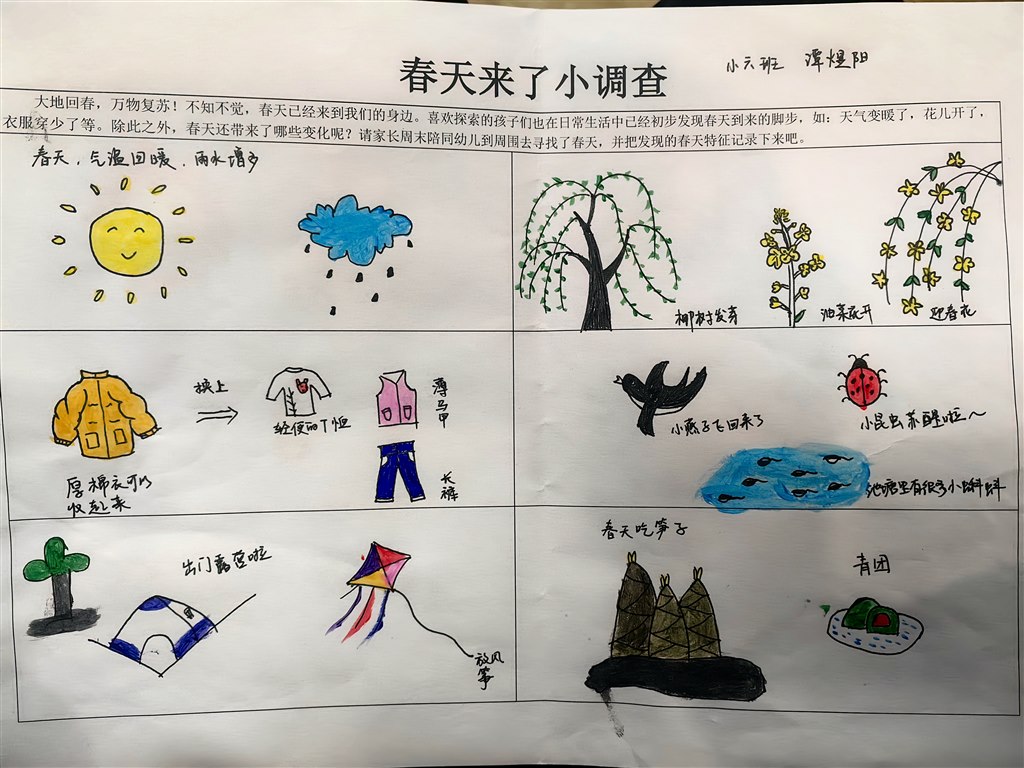 春天来了小调查
小六班 潭焜阳
大地回春，万物复苏！不知不觉，春天已经来到我们的身边。喜欢探索的孩子们也在日常生活中已经初步发现春天到来的脚步，如：天气变暖了，花儿开了，
衣服穿少了等。除此之外，春天还带来了哪些变化呢？请家长周末陪同幼儿到周围去寻找了春天，并把发现的春天特征记录下来吧。
春天，气温回暖，雨水增多
柳树发芽
油菜花开
迎春花
厚棉衣可以
收起来
换上
轻便的T恤
薄马甲
长裤
小燕子飞回来了
小昆虫苏醒啦~
池塘里有很多小蝌蚪
出门露营啦
放风
筝
春天吃笋子
青团